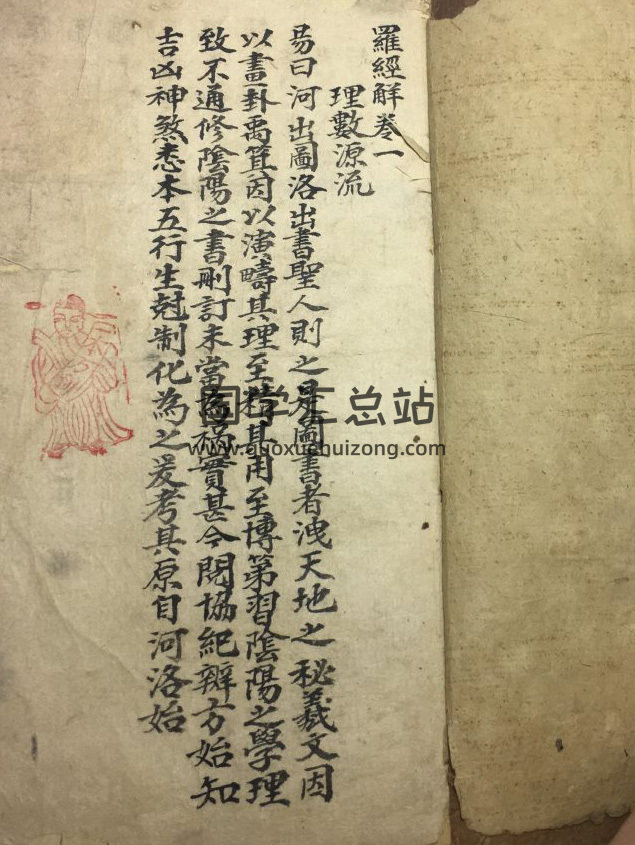 羅經解卷一
理數源流
易曰河出圖洛出書聖人則之是圖書者洩天地之秘羲文因
以畫卦禹箕因以演疇其理至精其用至博第習陰陽之學理
致不通修陰陽之書刪訂未當為禍實甚今閱協紀辦方始知
吉凶神煞悉本五行生尅制化為之爰考其原自河洛始
国学汇总站
www.guoxuehuizong.com